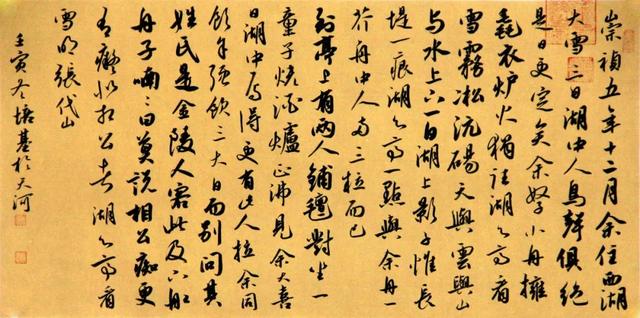 崇禎五年十二月余住西湖
大雪三日湖中人鳥聲俱絕
是日更定矣余拏小舟擁
毳衣爐火獨往湖心亭看
雪霧凇沆碭天與雲與山
與水上下一白湖上影子惟長
堤一痕湖心亭一點與余舟一
芥舟中人兩三粒而已
到亭上有兩人鋪氈對坐一
童子燒酒爐正沸見余大喜
曰湖中焉得更有此人拉余同
飲余強飲三大白而別問其
姓氏是金陵人客此及下船
舟子喃喃曰莫說相公痴更
有癡似相公者湖心亭看
雪明張岱
壬寅冬培基於天河